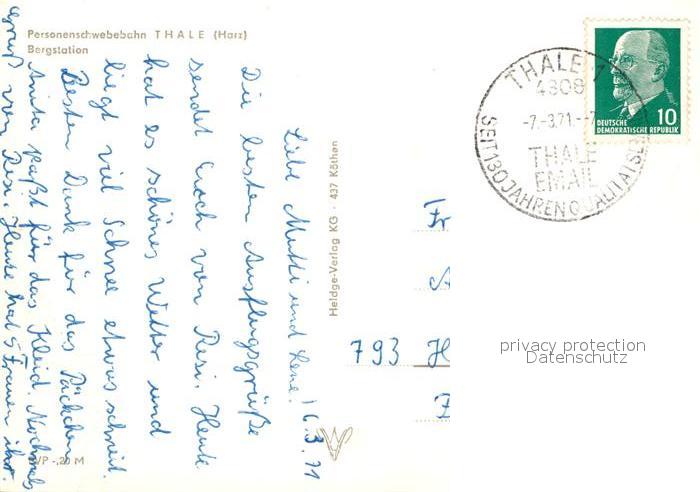 Personenschwebebahn THALE (Harz)
Bergstation
Liebe Mutti und Lene! 6.3.71
Die besten Ausflugsgrüße
sendet Euch von Resi. Heute
hat es schönes Wetter und
liegt viel Schnee etwas schneit.
Besten Dank für das Päckchen
Anita paßt für das Kleid. Nochmals
Gruß von Resi. Heute hat 5 Frauen ihr.
Heldge-Verlag KG · 437 Köthen
EVP -,20 M
THALE 1
4308
-7.-3.71.--7
THALE
EMAIL
SEIT 130 JAHREN QUALITÄTS
10
DEUTSCHE
DEMOKRATISCHE REPUBLIK
Fr
A
793 H
privacy protection
Datenschutz